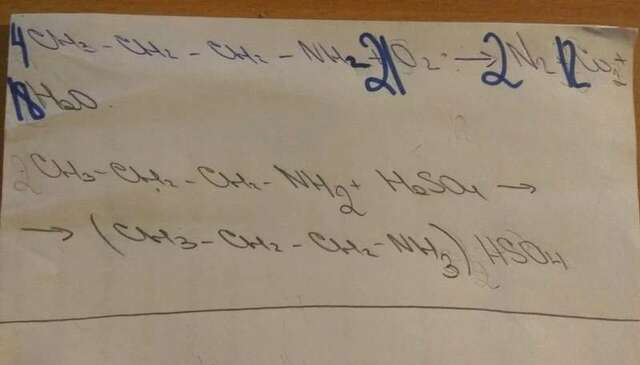 4CH3-CH2-CH2-NH2+21O2→2N2+12CO2+
18H2O
2CH3-CH2-CH2-NH2+ H2SO4 →
→ (CH3-CH2-CH2-NH3)2 HSO4